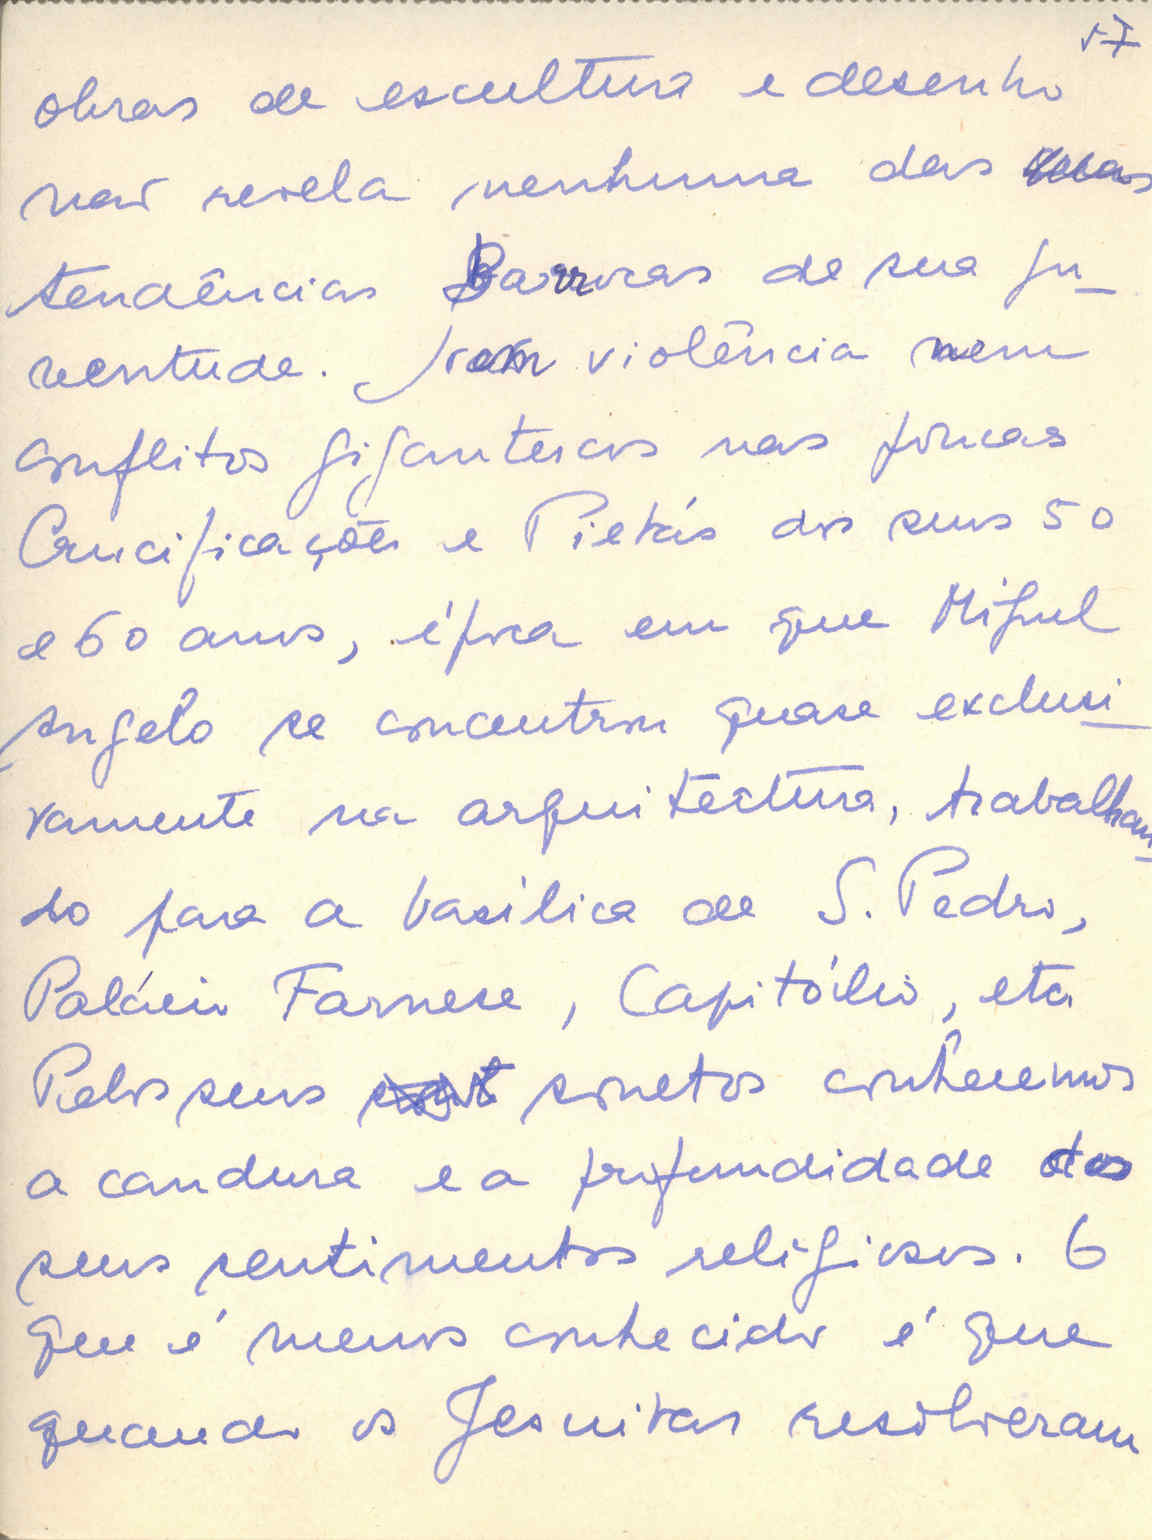 57
obras de escultura e desenho
não revela nenhuma das suas
tendências Barrocas de sua ju_
ventude. Nem violência nem
conflitos gigantescos nas poucas
Crucificações e Pietás dos seus 50
e 60 anos, época em que Miguel
Angelo se concentrou quase exclusi_
vamente na arquitectura, trabalhan_
do para a basílica de S. Pedro,
Palácio Farnese, Capitólio, etc
Pelos seus sonetos conhecemos
a candura e a profundidade dos
seus sentimentos religiosos. O
que é menos conhecido é que
quando os Jesuitas resolveram